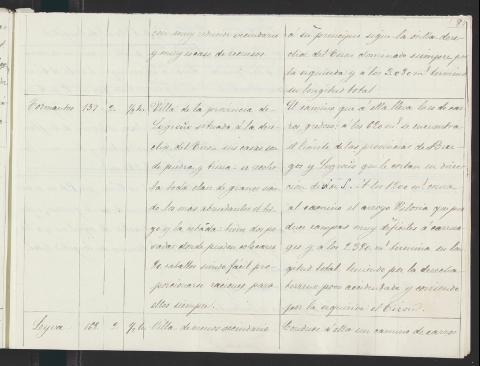 con muy reducido vecindario
y muy escaso de recursos.
á su principio sigue la orilla dere-
cha del Tiron dominado siempre por
la izquierda; y á los 3.030 m.s termina
su longitud total.
Tormantos 137 2
Villa de la provincia de
Logroño situada á la dere-
cha del Tiron sus casas son
de piedra, y tierra se recolec-
ta toda clase de granos sien-
do los mas abundantes el tri-
go y la cebada: tiene dos po-
sadas donde pueden colocarse
20 caballos siendo fácil pro-
porcionarse raciones para
ellos siempre.
El camino que á ella lleva es de car-
ros, á los 620 m.s se encuentra
el límite de las provincias de Bur-
gos y Logroño que le cortan en direc-
ción de N. á S. A los 1200 m.s corta
al camino el arroyo que pro-
duce campas muy difíciles á carrua-
ges y á los 2.380 m.s termina su lon-
gitud total, teniendo por la derecha
terreno poco accidentado y corriendo
por la izquierda el Tiron.
Leyva 168 2
Villa de menos vecindario
Conduce á ella un camino de carros